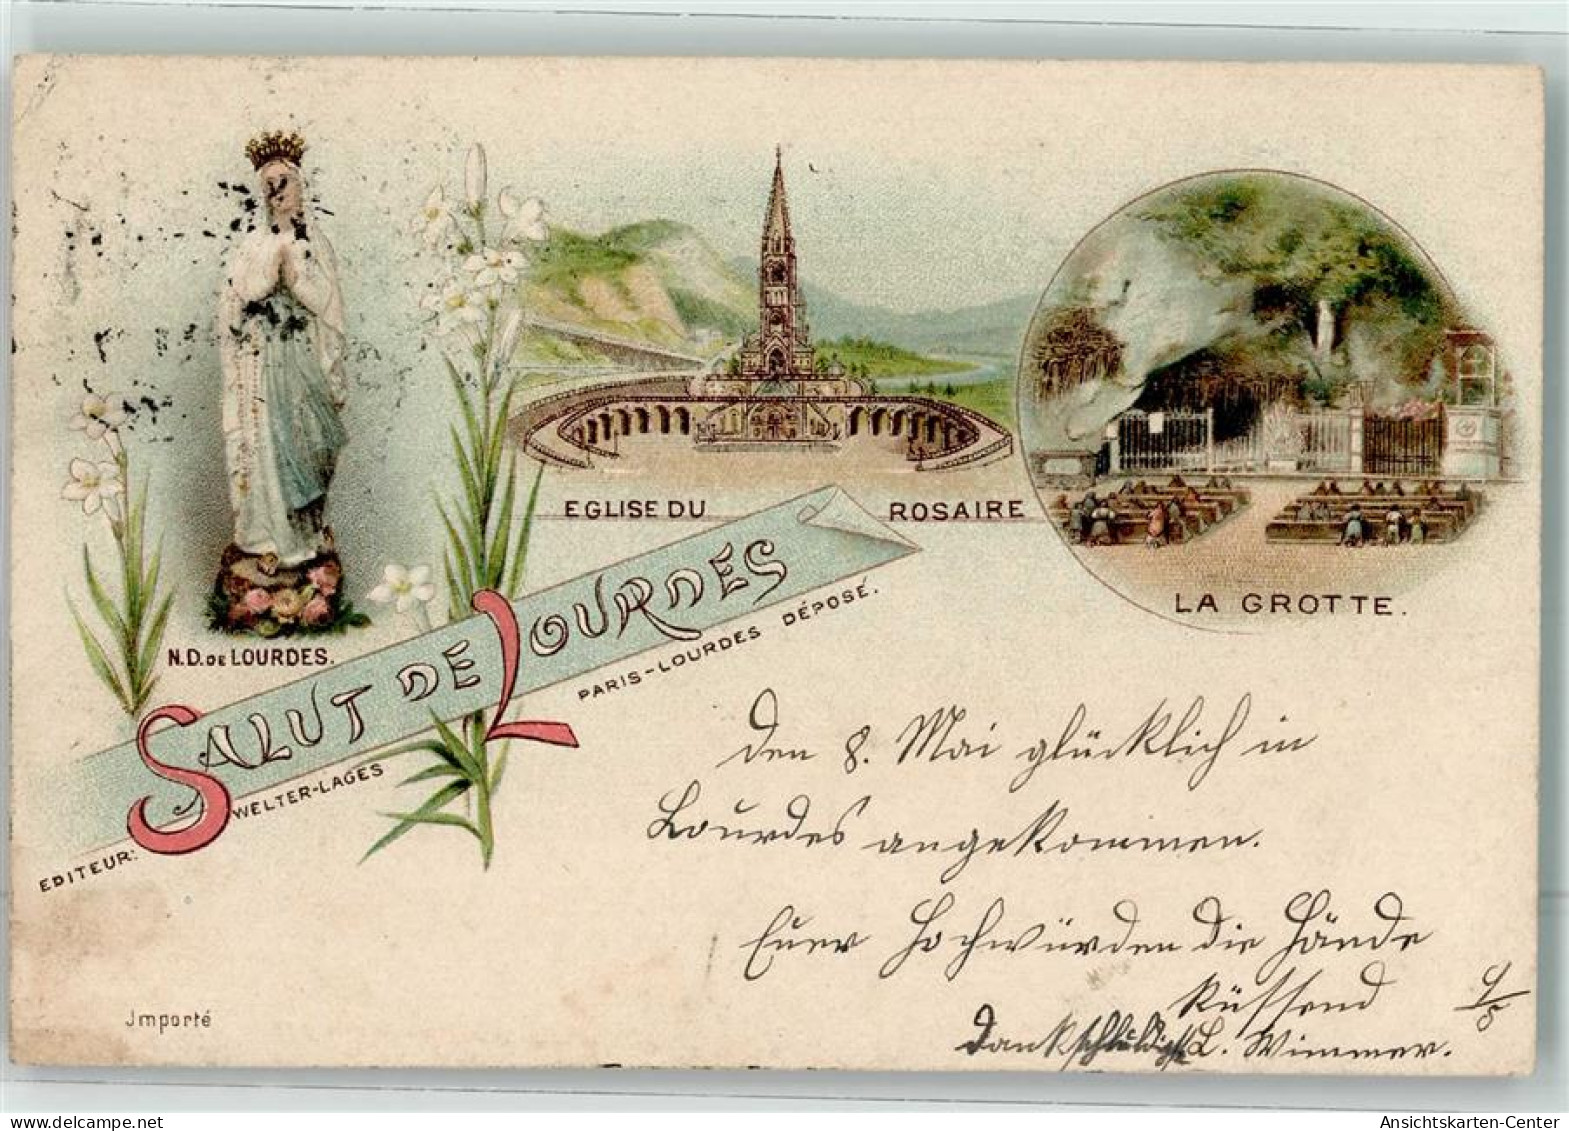 N.D. DE LOURDES.
EGLISE DU ROSAIRE
LA GROTTE.
SALUT DE LOURDES
EDITEUR: WELTER-LAGES PARIS-LOURDES DÉPOSÉ.
den 8. Mai glücklich in
Lourdes angekommen.
Euer Hochwürden die Hände
küssend
9/5
dankschuldigst L. Wimmer.
Jmporté
oldthing.de
Ansichtskarten-Center